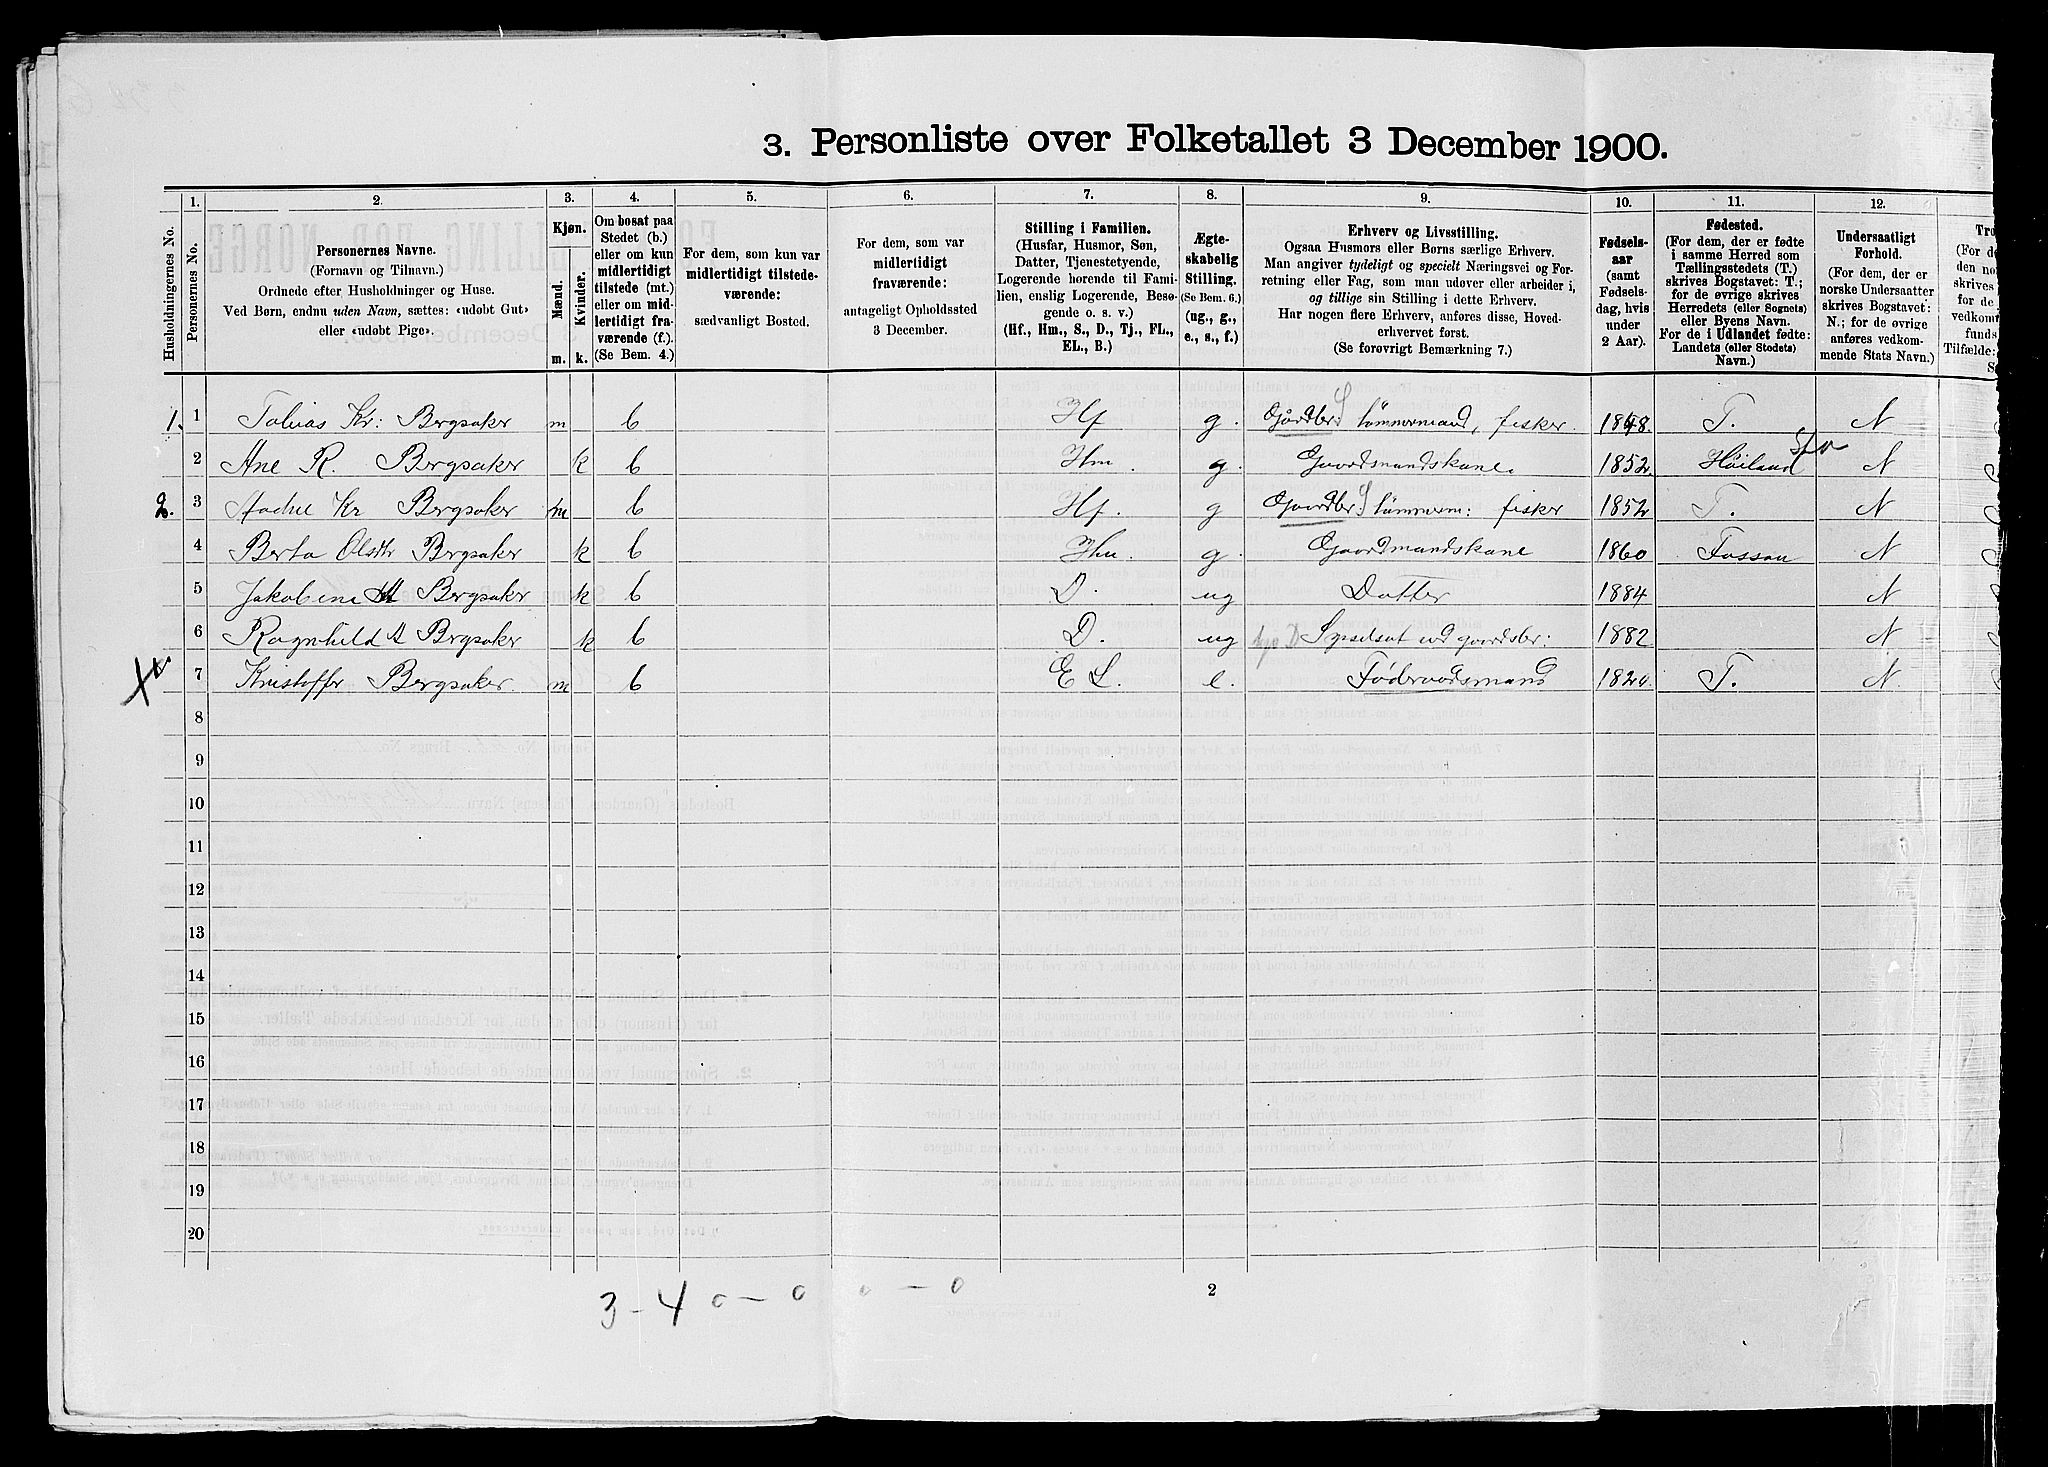 3. Personliste over Folketallet 3 December 1900.
1. 2. 3. 4. 5. 6. 7. 8. 9. 10. 11. 12.
Husholdningernes No.
Personernes No.
Personernes Navne.
(Fornavn og Tilnavn.)
Ordnede efter Husholdninger og Huse.
Ved Børn, endnu uden Navn, sættes: «udøbt Gut»
eller «udøbt Pige».
Kjøn.
Mænd.
Kvinder.
m. k.
Om bosat paa
Stedet (b.)
eller om kun
midlertidigt
tilstede (mt.)
eller om mid-
lertidigt fra-
værende (f.).
(Se Bem. 4.)
For dem, som kun var
midlertidigt tilstede-
værende:
sædvanligt Bosted.
For dem, som var
midlertidigt
fraværende:
antageligt Opholdssted
3 December.
Stilling i Familien.
(Husfar, Husmor, Søn,
Datter, Tjenestetyende,
Logerende hørende til Fami-
lien, enslig Logerende, Besø-
gende o. s. v.)
(Hf., Hm., S., D., Tj., FL.,
EL., B.)
Ægte-
skabelig
Stilling.
(Se Bem. 6.)
(ug., g.,
e., s., f.)
Erhverv og Livsstilling.
Ogsaa Husmors eller Børns særlige Erhverv.
Man angiver tydeligt og specielt Næringsvei og For-
retning eller Fag, som man udøver eller arbeider i,
og tillige sin Stilling i dette Erhverv.
Har nogen flere Erhverv, anføres disse, Hoved-
erhvervet først.
(Se forøvrigt Bemærkning 7.)
Fødsels-
aar
(samt
Fødsels-
dag, hvis
under
2 Aar).
Fødested.
(For dem, der er fødte
i samme Herred som
Tællingsstedets (T.)
skrives Bogstavet: T.;
for de øvrige skrives
Herredets (eller Sognets)
eller Byens Navn.
For de i Udlandet fødte:
Landets (eller Stedets)
Navn.)
Undersaatligt
Forhold.
(For dem, der er
norske Undersaatter
skrives Bogstavet:
N.; for de øvrige
anføres vedkom-
mende Stats Navn.)
1. 1 Tobias Kr: Bergsaker m b Hf. g. Gaardbr. S tømmermand, fisker. 1848. T. N
2 Ane R. Bergsaker k b Hm. g. Gaardmandskone. 1852. Høiland N
2. 3 Kr Bergsaker m b Hf. g Gaardbr. S tømmerm: fisker 1852 T. N
4 Berta Bergsaker k b Hm. g. Gaardmandskone 1860 Fossan N
5 Jakobine Bergsaker k b D. ug Datter 1884 N
6 Ragnhild A Bergsaker k b D. ug Syselsat ved gaardsbr: 1882 N
7 Kristoffer Bergsaker. m b E L. e. Føderaadsmand 1820. T. N.
8
9
10
11
12
13
14
15
16
17
18
19
20
3 - 4 0 - 0 0 - 0
2